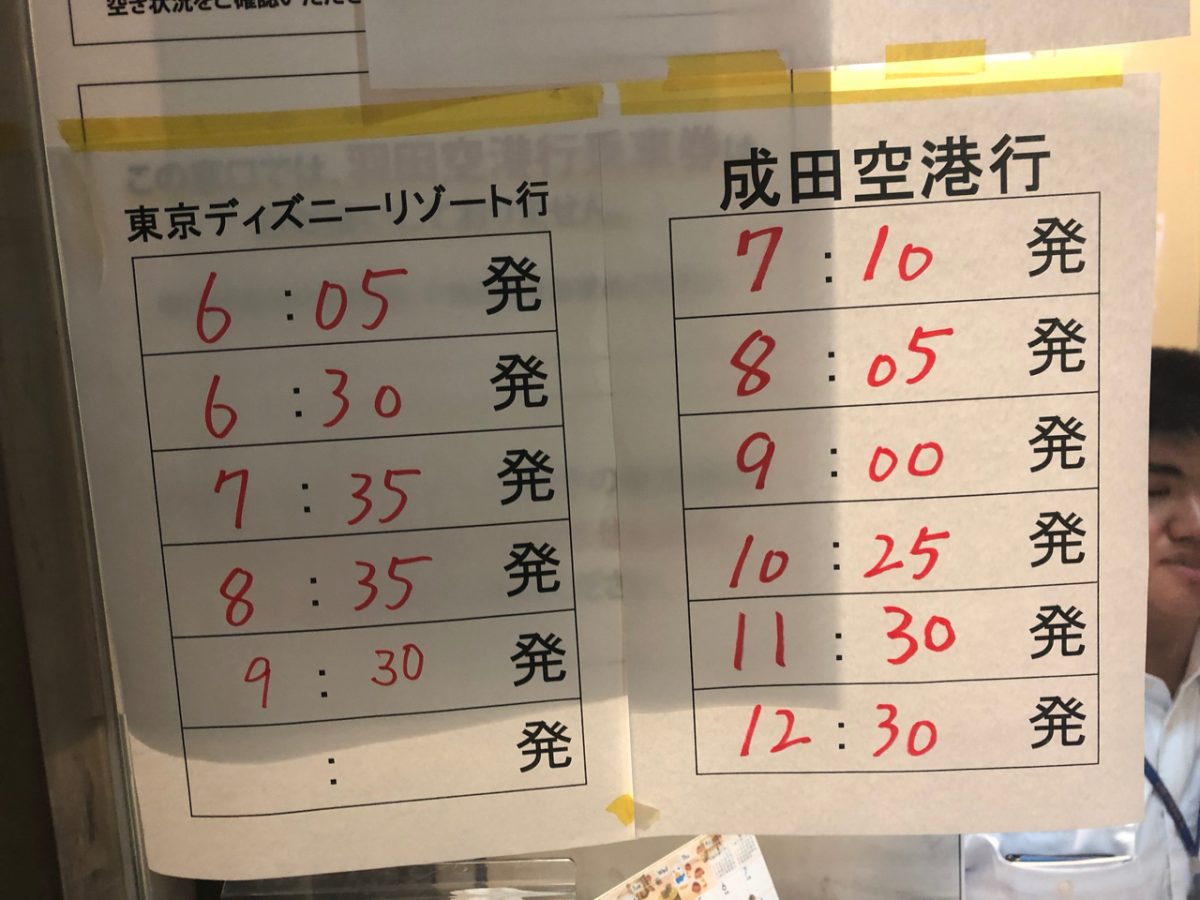 空き状況をご確認いただき
東京ディズニーリゾート行
6:05発
6:30発
7:35発
8:35発
9:30発
:発
成田空港行
7:10発
8:05発
9:00発
10:25発
11:30発
12:30発